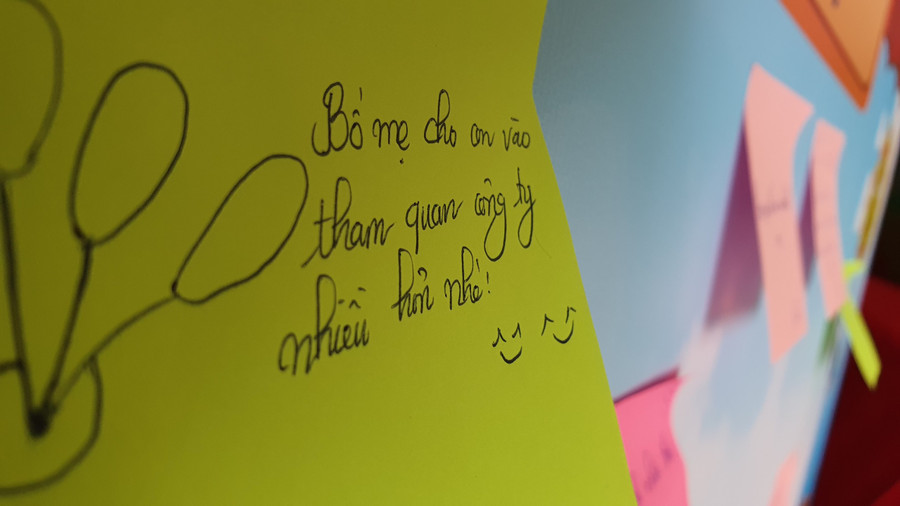 Bố mẹ cho con vào
tham quan công ty
nhiều hơn nhé!